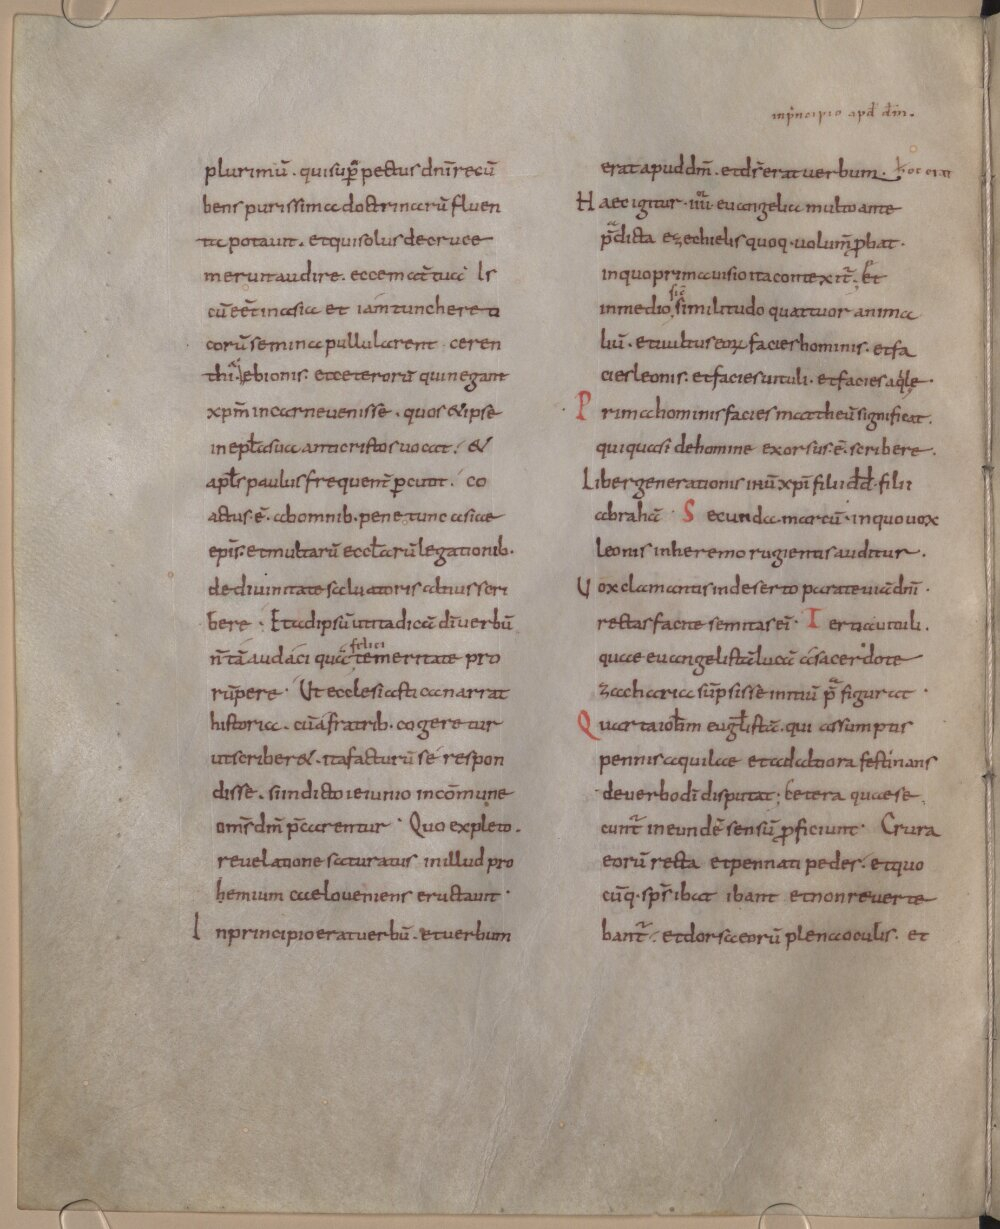 inprincipio apd dm̄.
plurimū . quisup̄ pectus dn̄i recū
bens purissima doctrinarū fluen
ta potauit . et qui solus de cruce
meruit audire . ecce mat̄ tua Is
cū eēt in asia et iam tunc heret ti
corū semina pullularent cerin
thi ebionis . et ceterorū qui negant
xp̄m in carne uenisse . quos & ipse
in ep̄la sua anticristos uocat . &
apl̄s paulus frequent̄ percutit . co
actus . ē . ab omnib . pene tunc asiae
epīs . et multarū eccl̄arū legationib .
de diuinitate saluatoris altius scri
bere . Et ad ipsū ut ita dicā dī uerbū
n̄ tā audaci quā felici temeritate pro
rūpere . Ut ecclesiastica narrat
historia . cū a fratrib . cogeretur
ut scriber& . ita facturū se respon
disse . si indicto ieiunio in cōmune
om̄s dm̄ p̄carentur . Quo expleto .
reuelatione saturatus in illud pro
hemium caelo ueniens eructauit .
In principio erat uerbū . et uerbum
erat apud dm̄ . et ds̄ erat uerbum . hoc erat
Haec igitur . iiii euangelia multo ante
p̄dicta ezechielis quoq . volum̄ ꝓbat .
in quo prima uisio ita contexit̄ . Et
in medio sic̄ similitudo quattuor anima
liū . et uultus eoꝝ facies hominis . et fa
cies leonis . et facies uituli . et facies aq̇le
Prima hominis facies mattheū significat .
qui quasi de homine exorsus . ē . scribere .
Liber generationis iħū xp̄i filii dd̄ . filii
abrahā Secunda marcū . in quo uox
leonis in heremo rugientis auditur .
Uox clamantis in deserto parate uiā dn̄i .
rectas facite semitas ei . Tertia uituli .
quae euangelistā lucā a sacerdote
zacharia sūpsisse initiū p̄figurat .
Quarta ioh̄em eugl̄istā . qui assumptis
pennis aquilae et ad altiora festinans
de uerbo dī disputat . Cetera quae se
cunt̄ in eundē sensū ꝓficiunt . Crura
eorū recta et pennati pedes . et quo
cūq . sp̄s ibat ibant et non reuerte
bant̄ . et dorsa eorū plena oculis . et